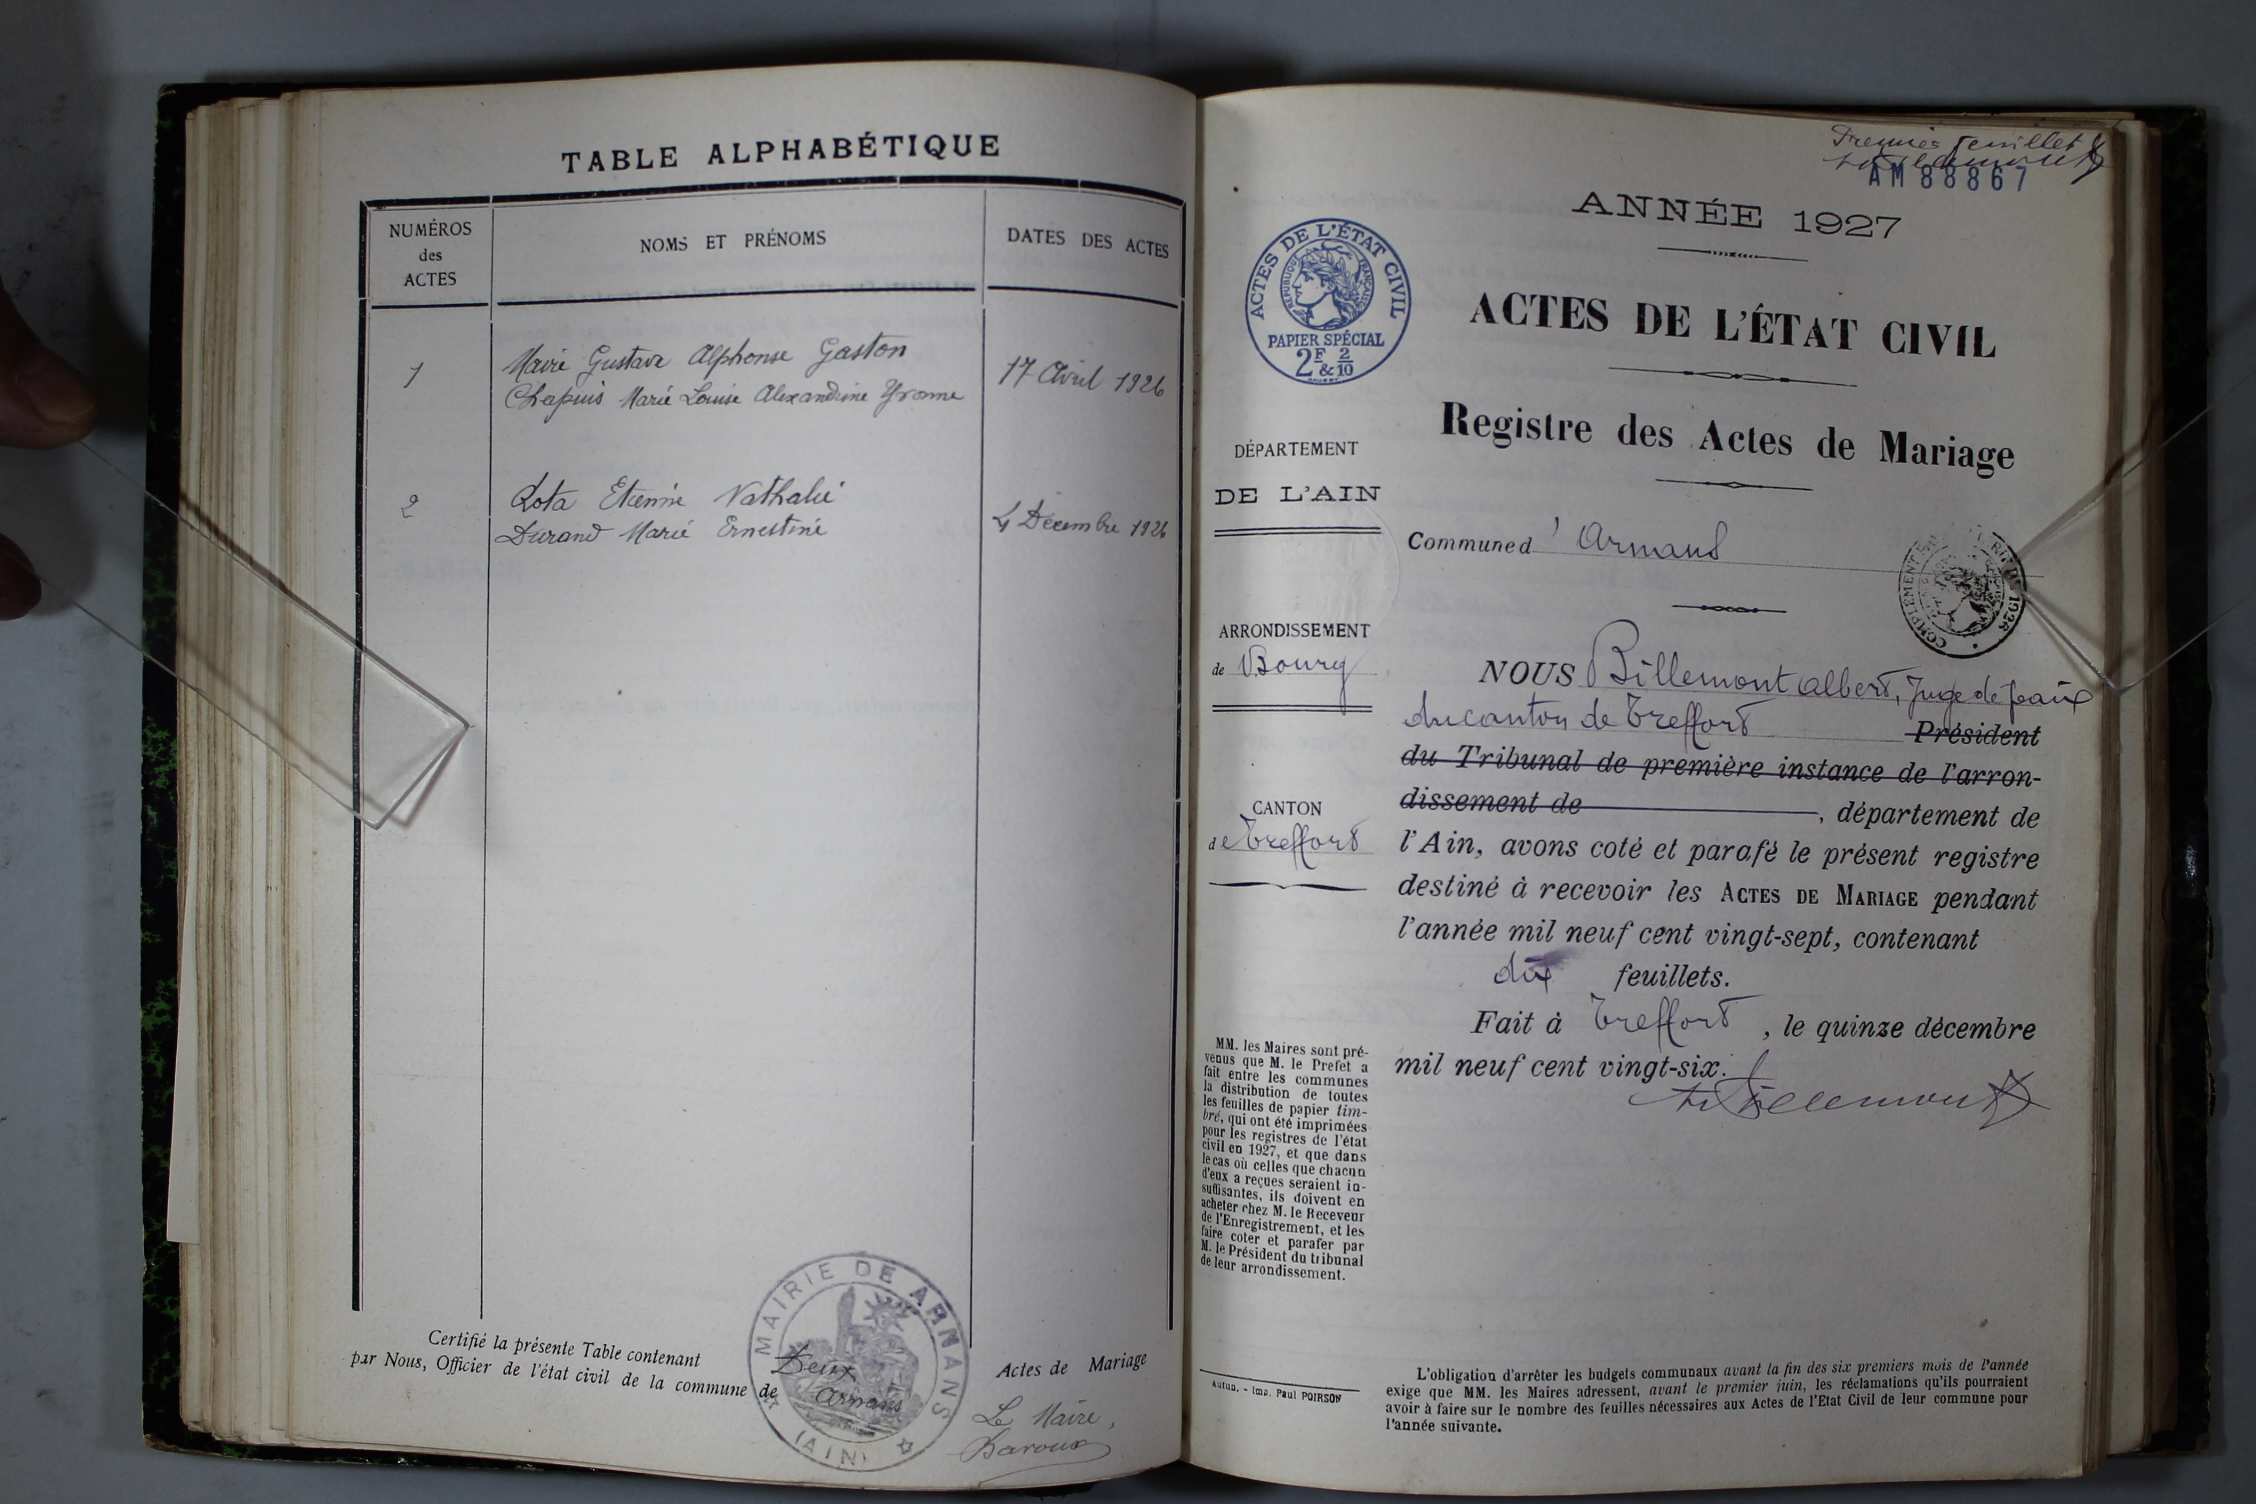 TABLE ALPHABÉTIQUE
NUMÉROS
des
ACTES
NOMS ET PRÉNOMS
DATES DES ACTES
1
Gustave Alphonse Gaston
Chapuis Marie Louise Alexandrine Yvonne
17 Avril 1926
2
Lota Etienne Nathalie
Durand Marie Ernestine
4 Décembre 1926
Certifié la présente Table contenant Deux Actes de Mariage
par Nous, Officier de l'état civil de la commune de Arnans
MAIRIE DE ARNANS
(AIN)
Le Maire,
Premier feuillet
AM 88867
ANNÉE 1927
ACTES DE L'ÉTAT CIVIL
RÉPUBLIQUE FRANÇAISE
PAPIER SPÉCIAL
2F & 2/10
ACTES DE L'ÉTAT CIVIL
Registre des Actes de Mariage
DÉPARTEMENT
DE L'AIN
Commune d'Arnans
ARRONDISSEMENT
de Bourg
CANTON
de Treffort
NOUS Billemont Albert, Juge de paix
du canton de Treffort Président
du Tribunal de première instance de l'arron-
dissement de , département de
l'Ain, avons coté et parafé le présent registre
destiné à recevoir les ACTES DE MARIAGE pendant
l'année mil neuf cent vingt-sept, contenant
dix feuillets.
Fait à Treffort, le quinze décembre
mil neuf cent vingt-six.
Billemont
MM. les Maires sont pré-
venus que M. le Prefet a
fait entre les communes
la distribution de toutes
les feuilles de papier tim-
bré, qui ont été imprimées
pour les registres de l'état
civil en 1927, et que dans
le cas où celles que chacun
d'eux a reçues seraient in-
suffisantes, ils doivent en
acheter chez M. le Receveur
de l'Enregistrement, et les
faire coter et parafer par
M. le Président du tribunal
de leur arrondissement.
Autun. - Imp. Paul POIRSON
L'obligation d'arrêter les budgets communaux avant la fin des six premiers mois de l'année
exige que MM. les Maires adressent, avant le premier juin, les réclamations qu'ils pourraient
avoir à faire sur le nombre des feuilles nécessaires aux Actes de l'Etat Civil de leur commune pour
l'année suivante.